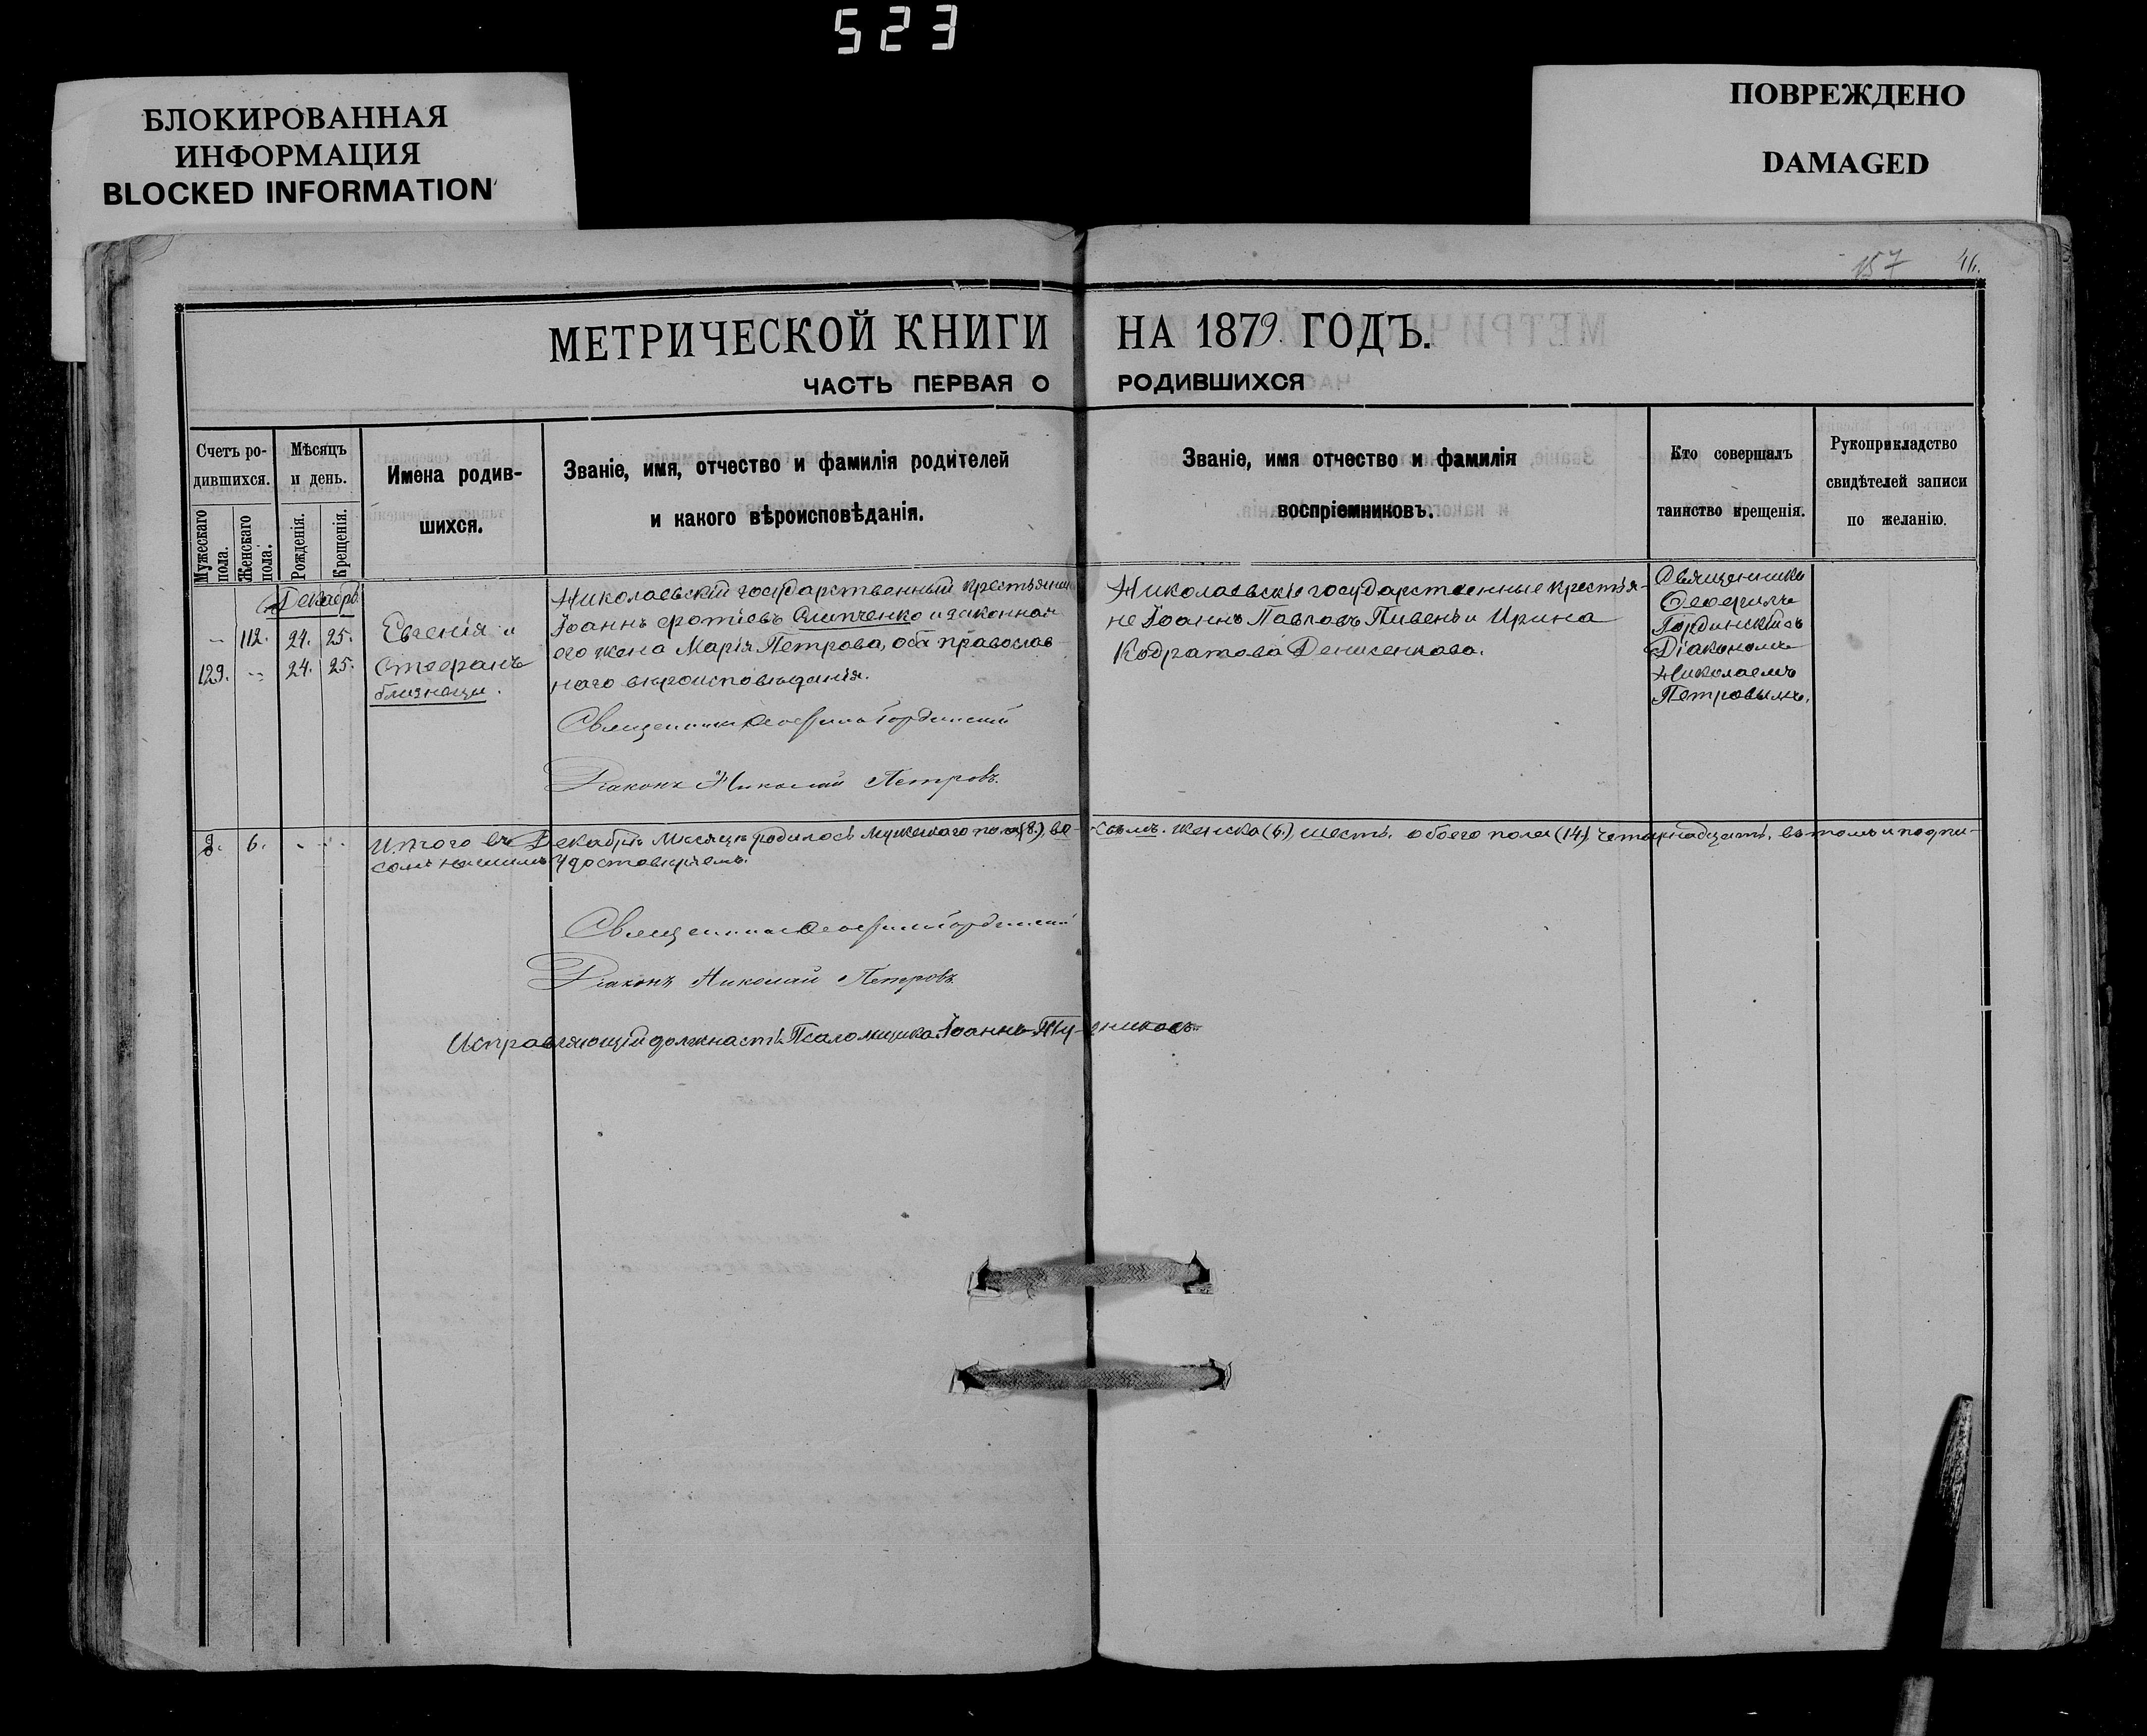 523
БЛОКИРОВАННАЯ
ИНФОРМАЦИЯ
BLOCKED INFORMATION
ПОВРЕЖДЕНО
DAMAGED
157
МЕТРИЧЕСКОЙ КНИГИ НА 1879 ГОДЪ.
ЧАСТЬ ПЕРВАЯ О РОДИВШИХСЯ
Счетъ ро-
дившихся.
Мужескаго пола.
Женскаго пола.
Мѣсяцъ
и день.
Рожденія.
Крещенія.
Имена родив-
шихся.
Званіе, имя, отчество и фамилія родителей
и какого вѣроисповѣданія.
Званіе, имя отчество и фамилія
воспріемниковъ.
Кто совершалъ
таинство крещенія.
Рукоприкладство
свидѣтелей записи
по желанію.
Декабрь
112. 24. 25.
129. 24. 25.
Евгенія и
Стефанъ
близнецы.
Николаевскій государственный крестьянинъ
Іоаннъ Фотіевъ Слипченко и законная
его жена Марія Петрова, оба православ
наго вѣроисповѣданія.
Священникъ Ѳеофилъ Гординскій
Діаконъ Николай Петровъ.
Николаевскіе государственные крестья-
не Іоаннъ Павловъ Пивень и Ирина
Кодратова Денисенкова.
Священникъ
Ѳеофилъ
Гординскій съ
Діакономъ
Николаемъ
Петровымъ.
8. 6. Итого въ Декабрѣ мѣсяцѣ родилось мужескаго пола (8.) во-семь. женска (6.) шесть. обоего пола (14) четырнадцать. въ томъ и подпи-
сомъ нашимъ удостовѣряемъ.
Священникъ Ѳеофилъ Гординскій
Діаконъ Николай Петровъ
Исправляющій должность Псаломщика Іоаннъ